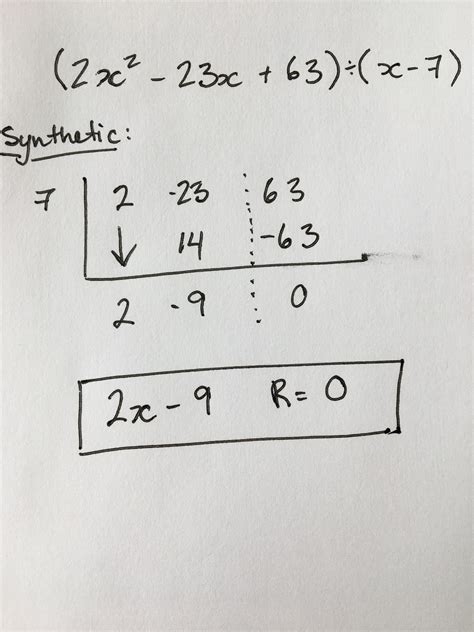 (2x² - 23x + 63)÷(x-7)
Synthetic:
7 2 -23 63
↓ 14 -63
2 -9 0
2x - 9 R= 0